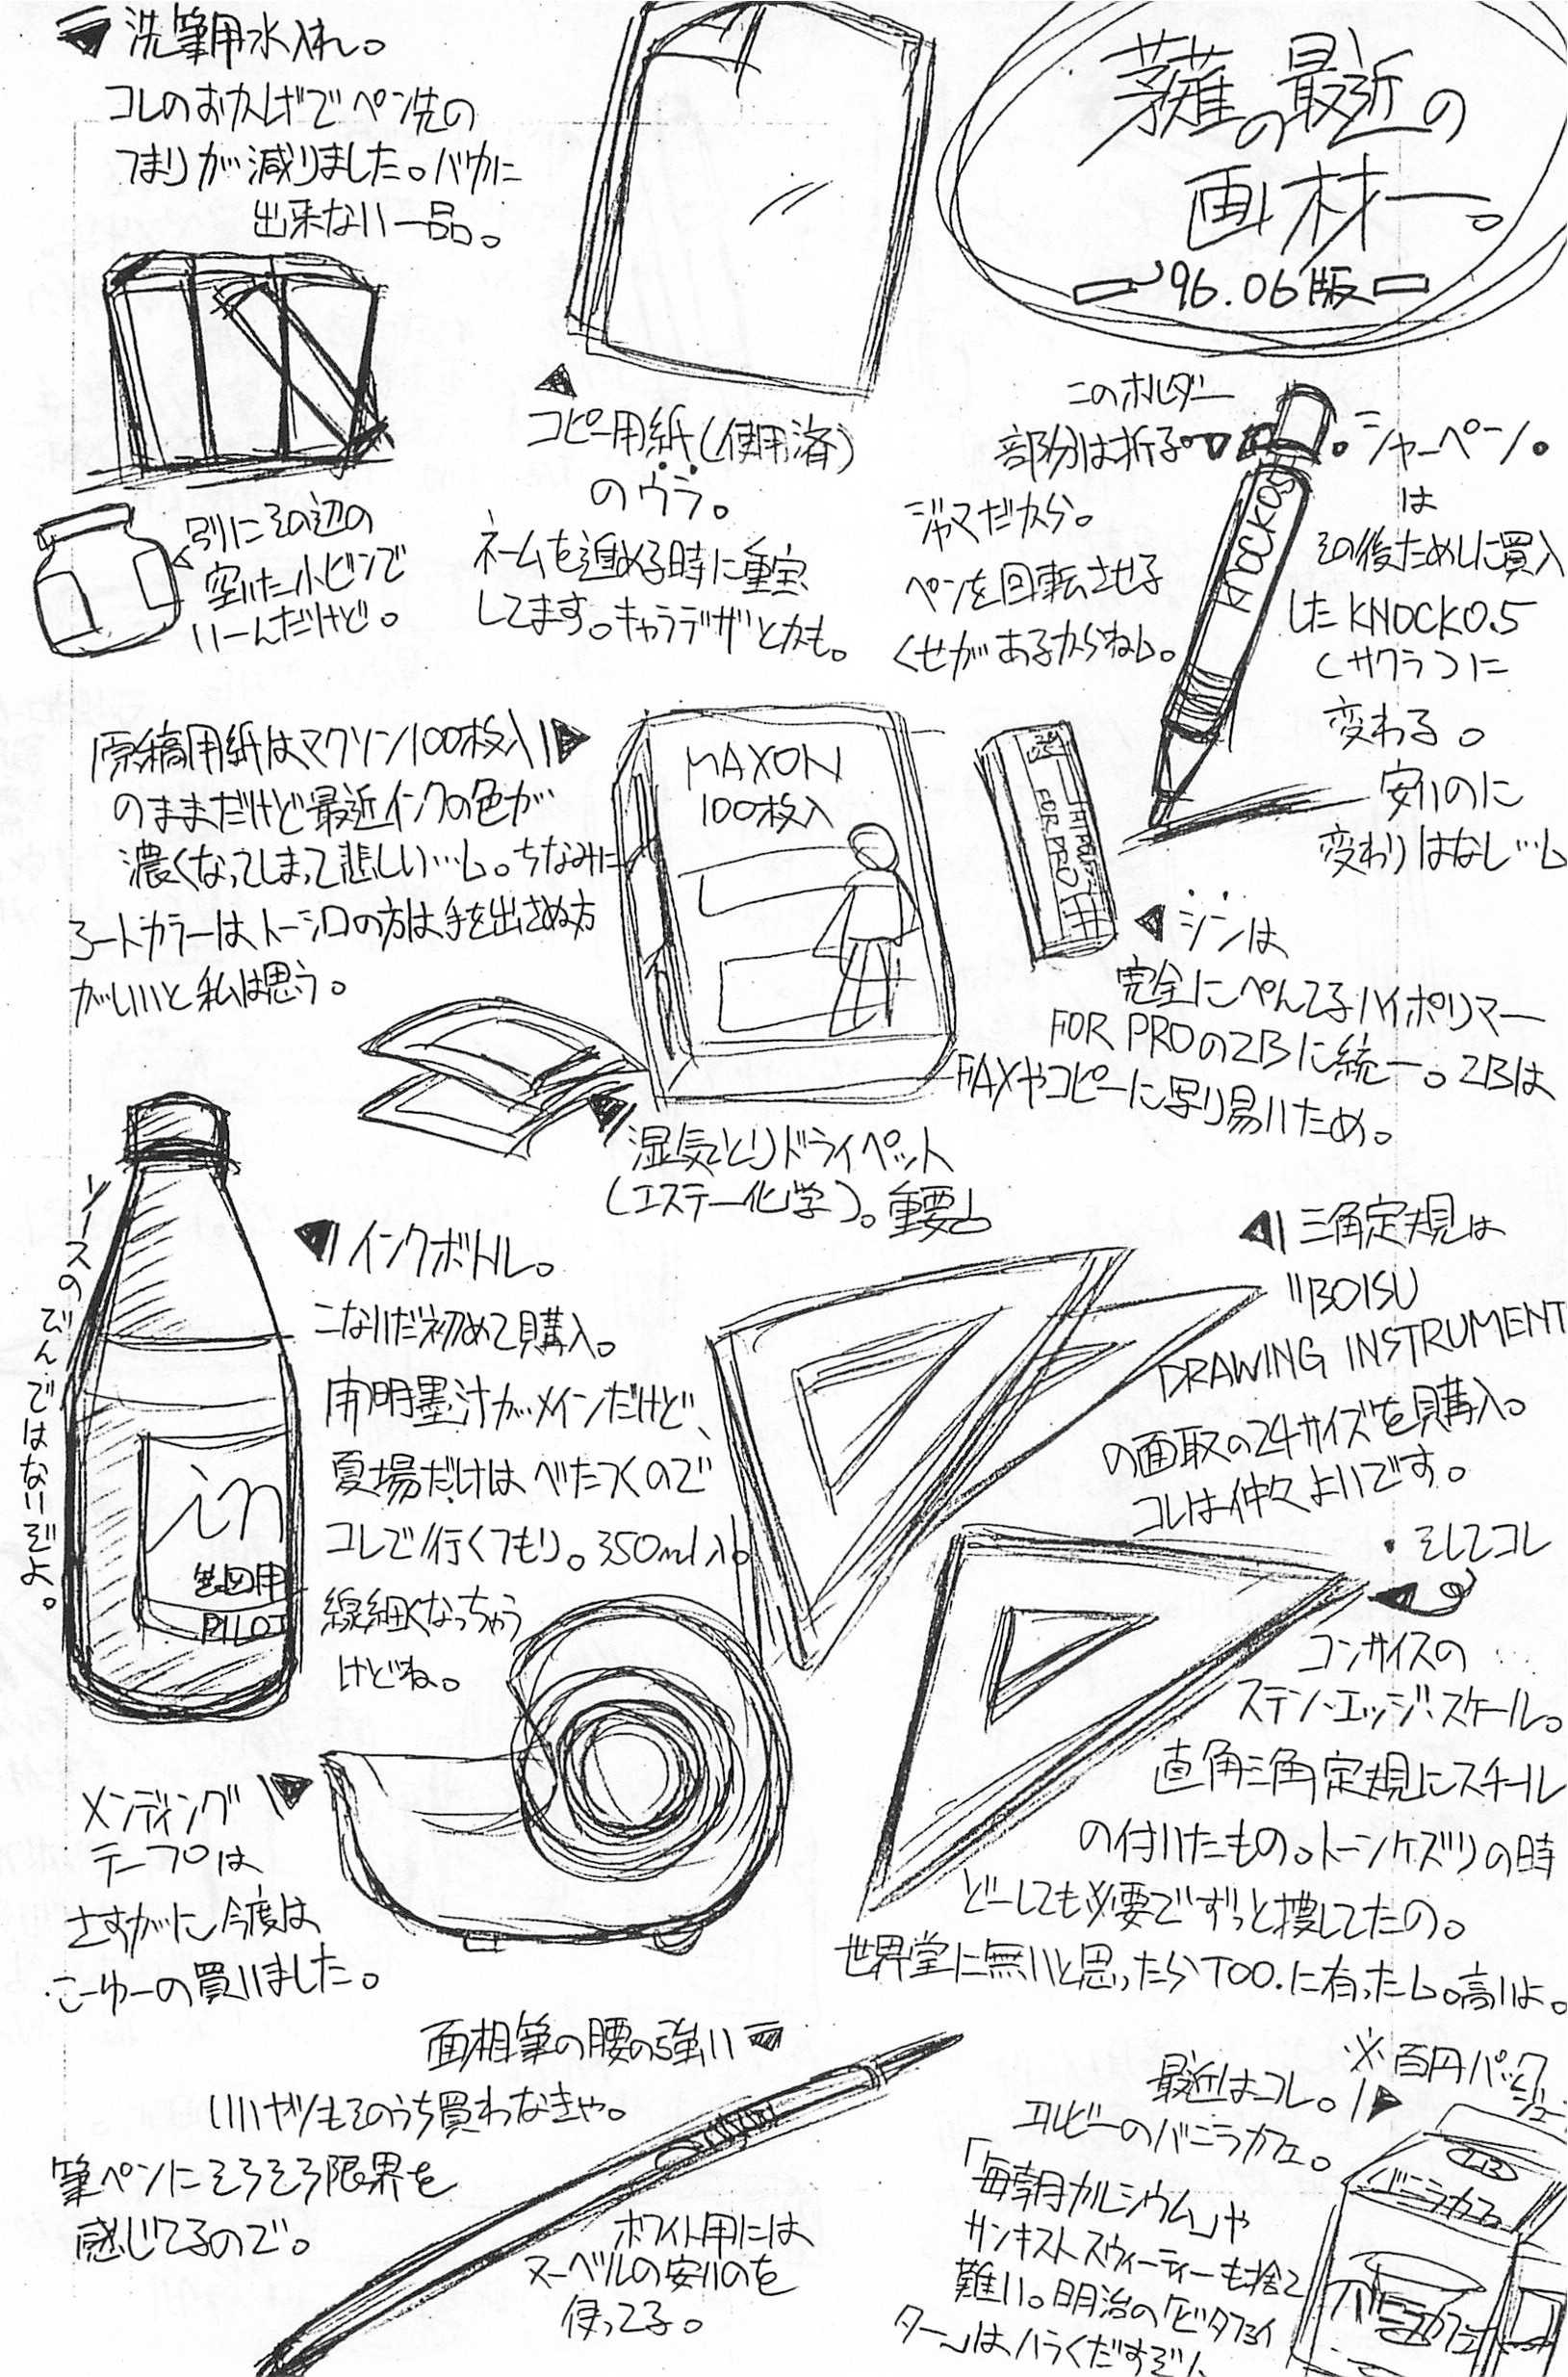 薙の最近の
画材ー。
'96.06版
洗筆用水入れ。
コレのおかげでペン先の
つまりが減りました。バカに
出来ない一品。
別にその辺の
空いた小ビンで
いーんだけど。
コピー用紙(使用済)
のウラ。
ネームを進める時に重宝
してます。キャラデザとかも。
このホルダー
部分は折る。
ジャマだから。
ペンを回転させる
くせがあるからねっ。
シャーペン。
は
その後ためしに買入
したKNOCK0.5
(サクラ)に
変わる。
安いのに
変わりはなし…っ
KNOCK0.5
原稿用紙はマクソン100枚入り
のままだけど最近インクの色が
濃くなってしまって悲しい…っ。ちなみに
ノートカラーは、トーシロの方は手を出さぬ方
がいいと私は思う。
MAXON
100枚入
FOR PRO
シンは
完全にぺんてるハイポリマー
FOR PROの2Bに統一。2Bは
FAXやコピーに写り易いため。
湿気とりドライペット
(エステー化学)。重要っ
ソースのびんではないぞよ。
in
製図用
PILOT
インクボトル。
こないだ初めて購入。
開明墨汁がメインだけど、
夏場だけはべたつくので
コレで行くつもり。350ml入り。
線細くなっちゃう
けどね。
三角定規は
"BOISU
DRAWING INSTRUMENT
の面取の24サイズを購入。
コレは仲々よいです。
・そしてコレ
コンサイスの
ステン・エッジ・スケール。
直角三角定規にスチール
の付いたもの。トーンケズリの時
どーしても必要でずっと捜してたの。
世界堂に無いと思ったらTOO.に有ったっ。高いよ。
メンディング
テープは
さすがに今度は
こーゆーの買いました。
面相筆の腰の強い
いいヤツもそのうち買わなきゃ。
筆ペンにそろそろ限界を
感じてるので。
ホワイト用には
ヌーベルの安いのを
使ってる。
※百円パック
ジュー
最近はコレ。
エルビーのバニラカフェ。
「毎朝カルシウム」や
サンキストスウィーティーも捨て
難い。明治の「ビタファイ
ター」はハラくだすぞっ、
LB
バニラカフェ
バニラカフェ